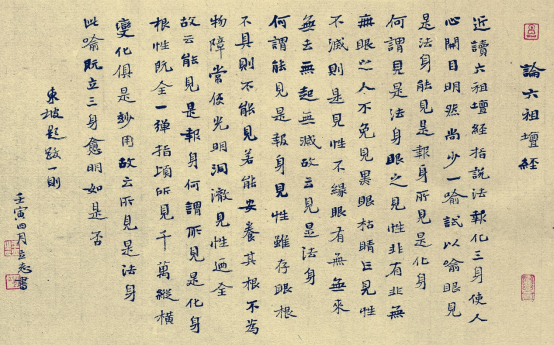 論六祖壇經
近讀六祖壇経指說法報化三身使人
心開目明然尚少一喻試以喻眼見
是法身能見是報身所見是化身
何謂見是法身眼之見性非有非無
無眼之人不免見黑眼枯睛亡見性
不滅則是見性不緣眼有無無來
無去無起無滅故云見是法身
何謂能見是報身見性雖存眼根
不具則不能見若能安養其根不為
物障常使光明洞澈見性迺全
故云能見是報身何謂所見是化身
根性既全一彈指頃所見千萬縱橫
變化俱是妙用故云所見是法身
此喻既立三身愈明如是否
東坡題跋一則
壬寅四月立志書